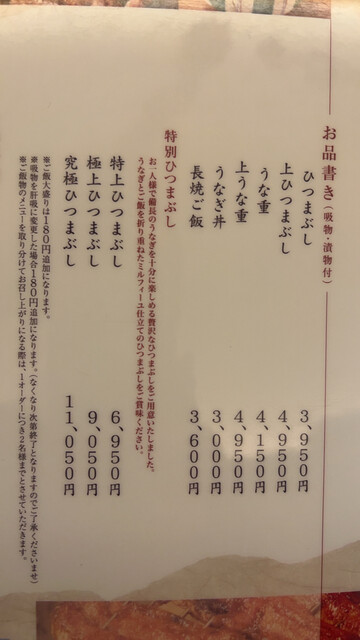 お品書き（吸物・漬物付）
ひつまぶし 3,950円
上ひつまぶし 4,950円
うな重 4,150円
上うな重 4,950円
うなぎ丼 3,000円
長焼ご飯 3,600円
特別ひつまぶし
お一人様で備長のうなぎを十分に楽しめる贅沢なひつまぶしをご用意いたしました。
うなぎとご飯を折り重ねたミルフィーユ仕立てのひつまぶしをご賞味ください。
特上ひつまぶし 6,950円
極上ひつまぶし 9,050円
究極ひつまぶし 11,050円
※ご飯大盛りは180円追加になります。
※吸物を肝吸に変更した場合180円追加になります。（なくなり次第終了となりますのでご了承くださいませ）
※ご飯物のメニューを取り分けてお召し上がりになる際は、1オーダーにつき2名様までとさせていただきます。